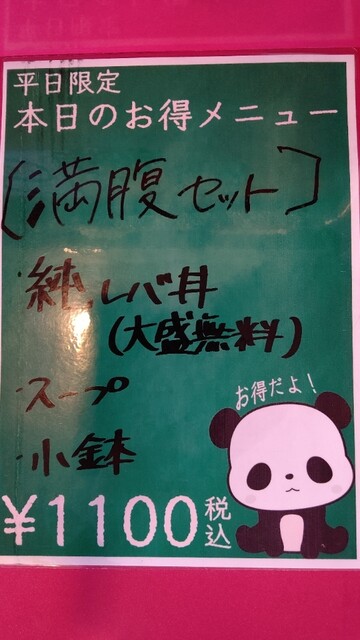 平日限定
本日のお得メニュー
〔満腹セット〕
・純レバ丼
(大盛無料)
・スープ
・小鉢
お得だよ!
¥1100税込